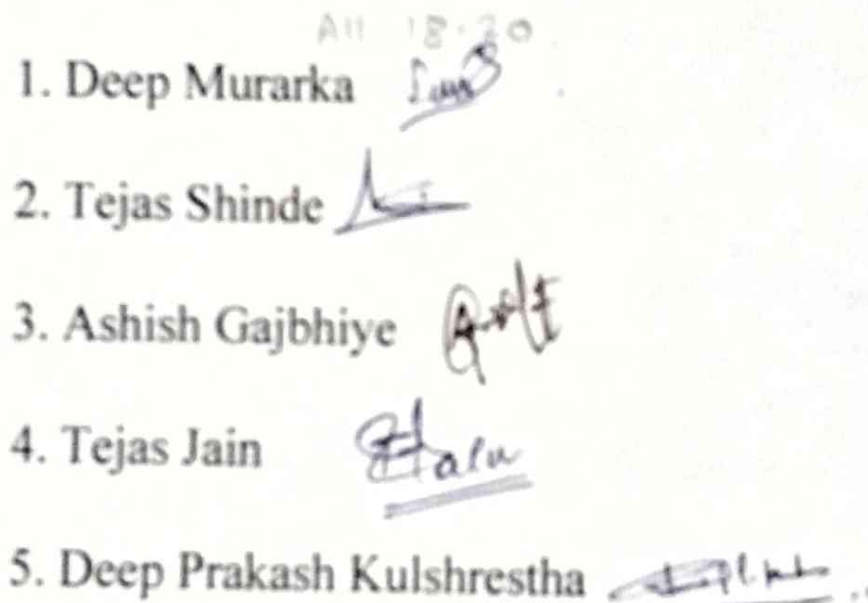 All 18-20
1. Deep Murarka
2. Tejas Shinde
3. Ashish Gajbhiye
4. Tejas Jain
5. Deep Prakash Kulshrestha